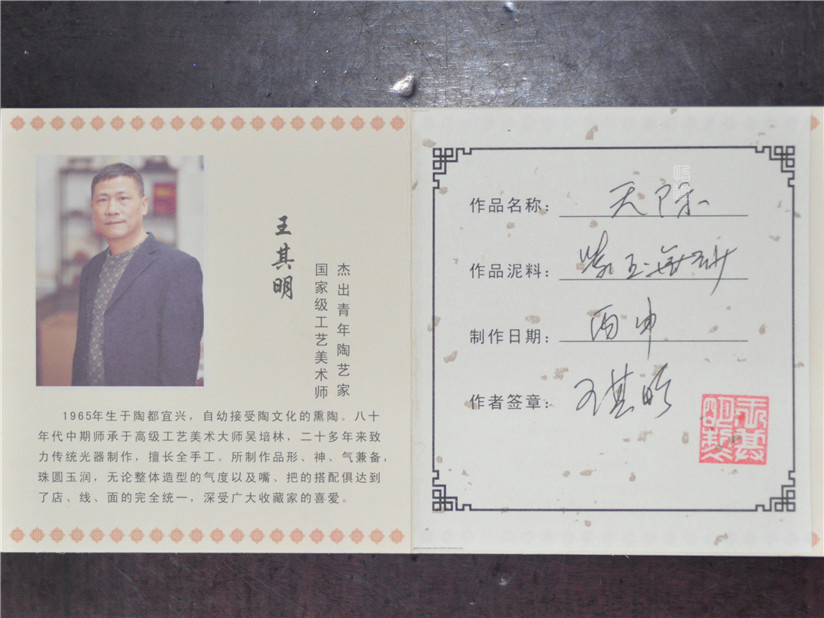 王其明
杰出青年陶艺家
国家级工艺美术师
1965年生于陶都宜兴，自幼接受陶文化的熏陶。八十
年代中期师承于高级工艺美术大师吴培林，二十多年来致
力传统光器制作，擅长全手工。所制作品形、神、气兼备，
珠圆玉润，无论整体造型的气度以及嘴、把的搭配俱达到
了店、线、面的完全统一，深受广大收藏家的喜爱。
作品名称：天际
作品泥料：
制作日期：丙申
作者签章：王其明